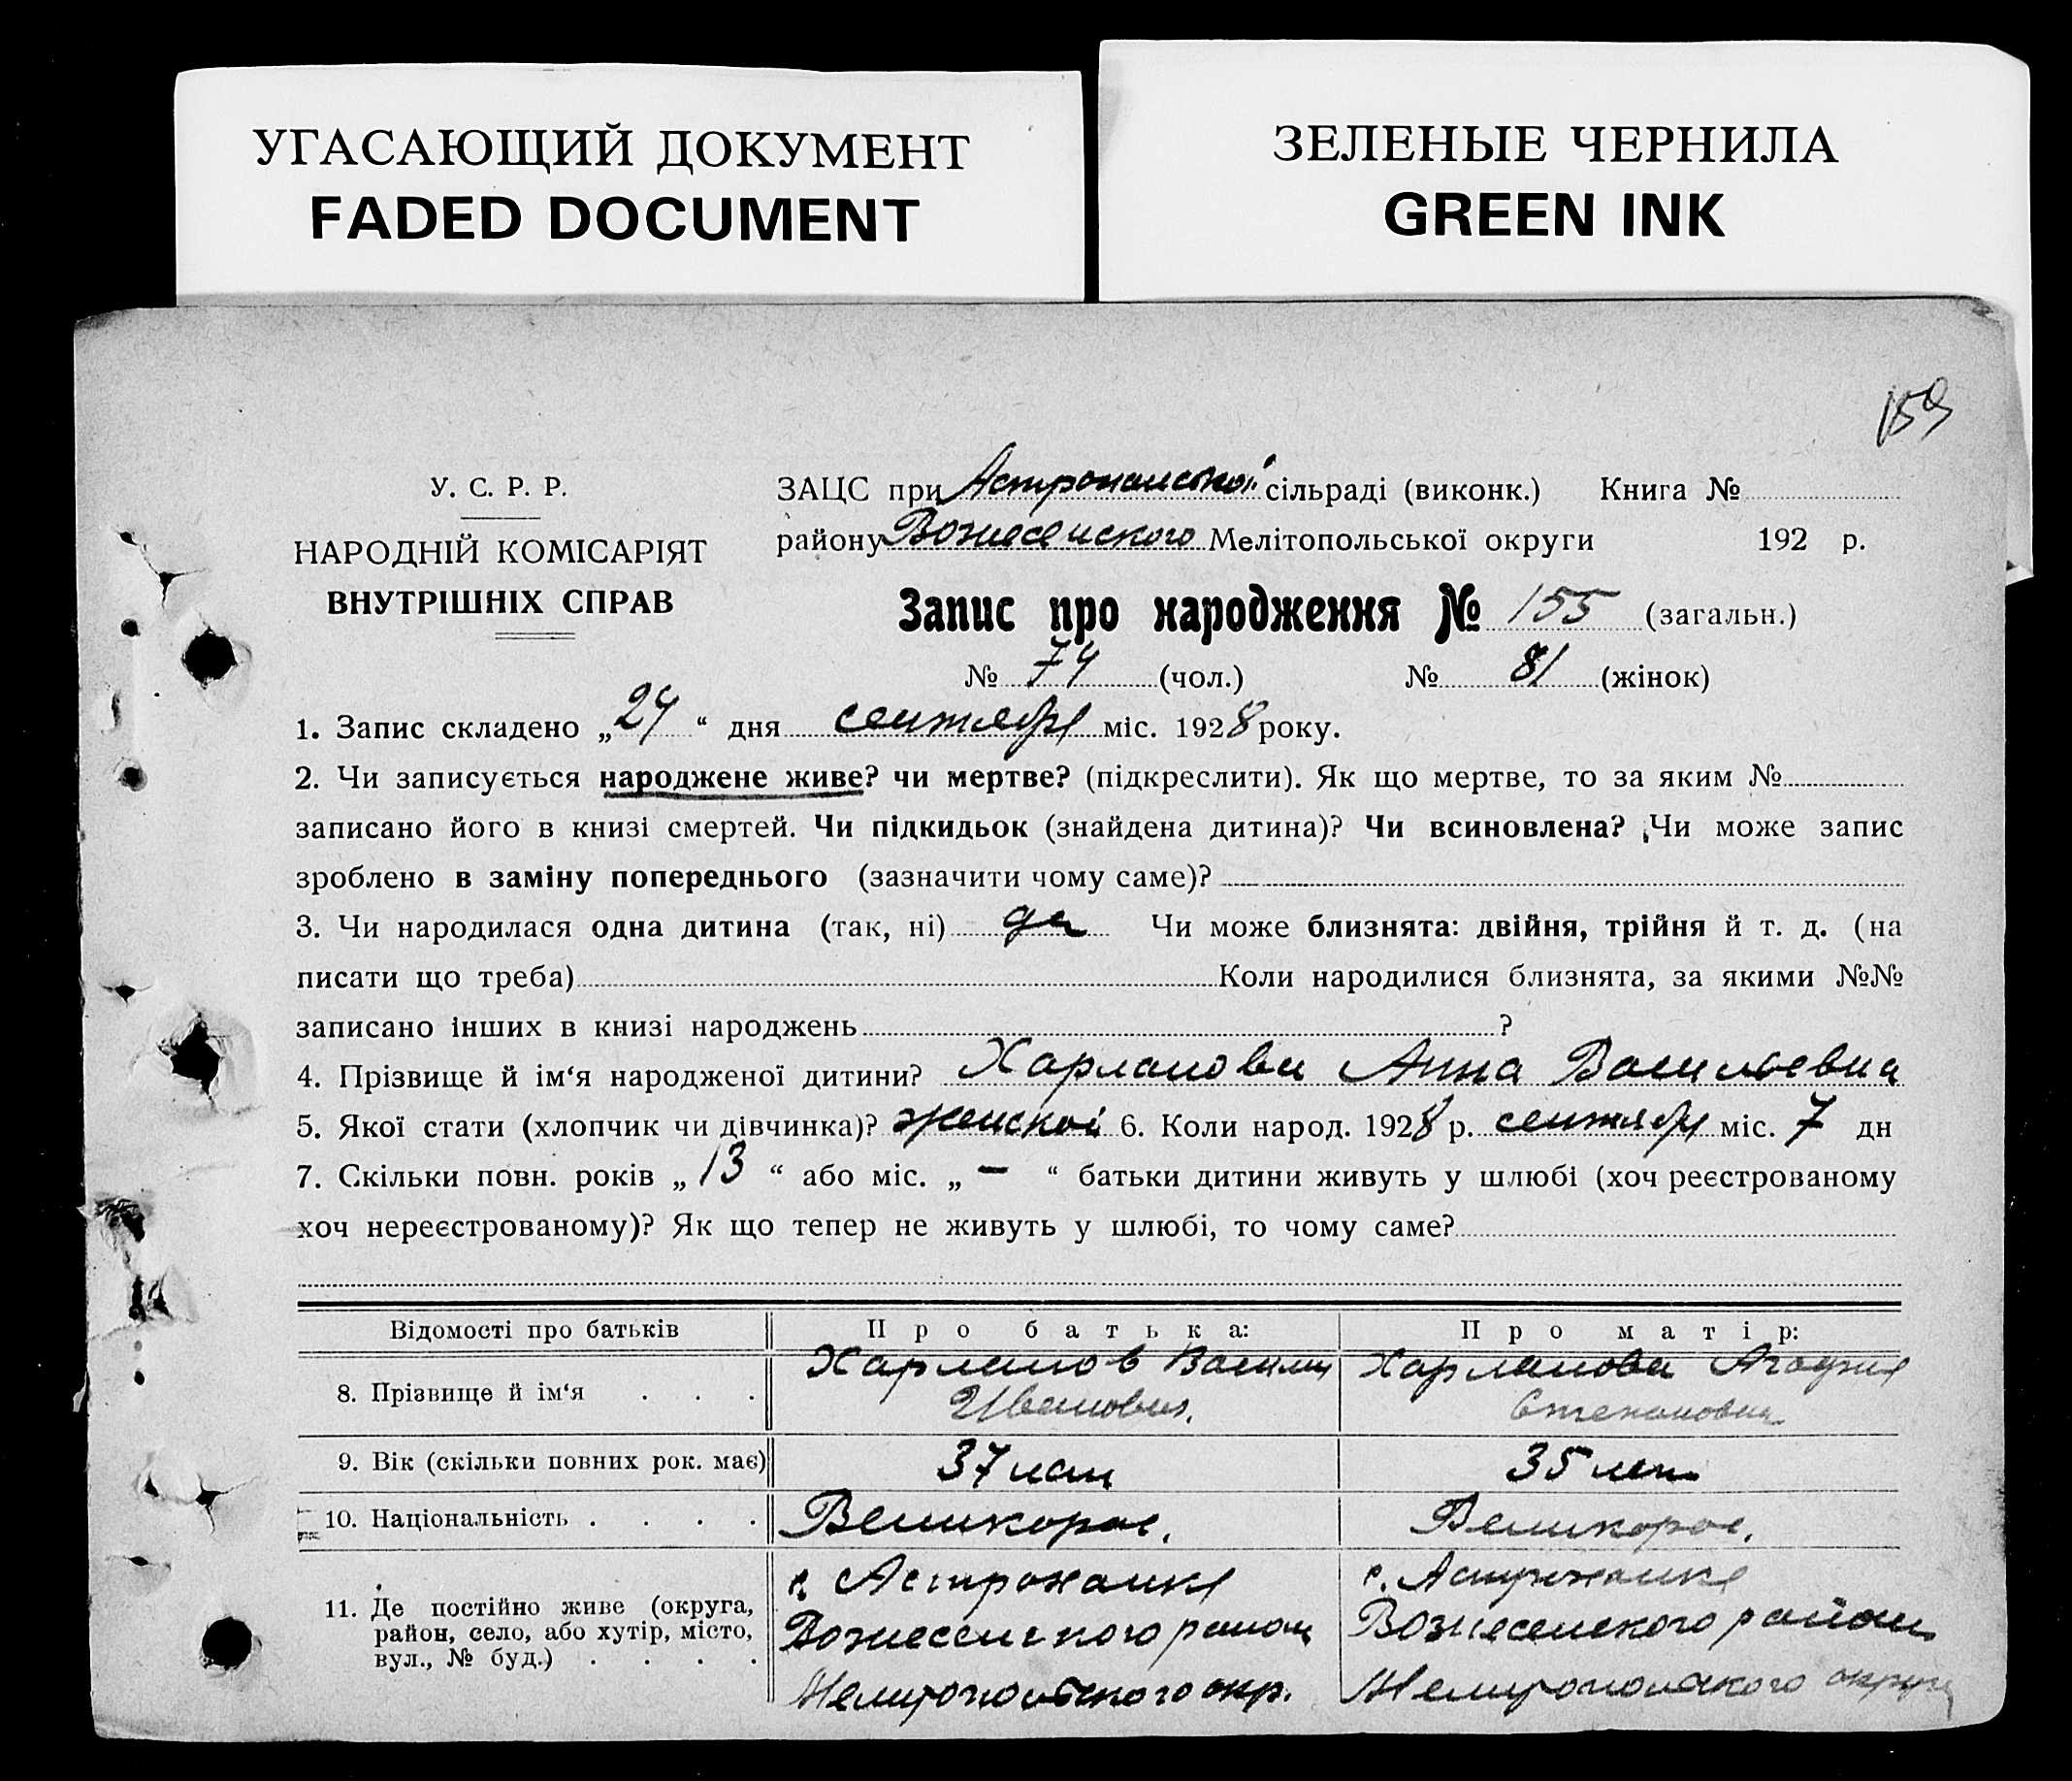 УГАСАЮЩИЙ ДОКУМЕНТ
FADED DOCUMENT
ЗЕЛЕНЫЕ ЧЕРНИЛА
GREEN INK
159
У. С. Р. Р.
НАРОДНІЙ КОМІСАРІЯТ
ВНУТРІШНІХ СПРАВ
ЗАЦС при Астраханської сільраді (виконк.) Книга №
району Вознесенского Мелітопольської округи 192 р.
Запис про народження № 155 (загальн.)
№ 74 (чол.) № 81 (жінок)
1. Запис складено „24“ дня сентября міс. 1928 року.
2. Чи записується народжене живе? чи мертве? (підкреслити). Як що мертве, то за яким №
записано його в книзі смертей. Чи підкидьок (знайдена дитина)? Чи всиновлена? Чи може запис
зроблено в заміну попереднього (зазначити чому саме)?
3. Чи народилася одна дитина (так, ні) да Чи може близнята: двійня, трійня й т. д. (на
писати що треба) Коли народилися близнята, за якими №№
записано інших в книзі народжень ?
4. Прізвище й ім‘я народженої дитини? Харламова Анна Васильевна
5. Якої стати (хлопчик чи дівчинка)? женской 6. Коли народ. 1928 р. сентября міс. 7 дн
7. Скільки повн. років „13“ або міс. „–“ батьки дитини живуть у шлюбі (хоч реєстрованому
хоч нереєстрованому)? Як що тепер не живуть у шлюбі, то чому саме?
Відомості про батьків Про батька: Про матір:
8. Прізвище й ім‘я . . . Харламов Василий Иванович. Харламова Агафия Степановна
9. Вік (скільки повних рок. має) 37 лет 35 лет
10. Національність . . . . Великорос. Великорос.
11. Де постійно живе (округа,
район, село, або хутір, місто,
вул., № буд.) . . . .
с. Астраханка
Вознесенского района
Мелитопольского окр.
с. Астраханка
Вознесенского района
Мелитопольского округа